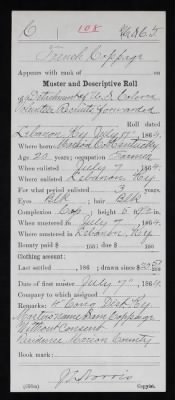 C 108 U.S.C.T.
French Coppage
Appears with rank of
Muster and Descriptive Roll
of Detachment of U.S. Colored
forwarded
Roll dated
Lebanon, Ky, July 17", 1864.
Where born Marion Co Kentucky
Age 20 years; occupation Farmer
When enlisted July 7, 1864.
Where enlisted Lebanon Ky.
For what period enlisted 3 years.
Eyes Blk; hair Blk
Complexion Cop; 5 ft. in.
When mustered in July 7, 1864.
Where mustered in Lebanon, Ky
Bounty paid $ 100; due $ 100
Clothing account:
Last settled , 186 ; drawn since $
Date of first muster July 7", 1864
Company to which assigned
Remarks: 4" Cong Dist Ky
name Sam Coppage
Without Consent
Residence Marion County
Book mark:
J. L. Norris
Copyist.